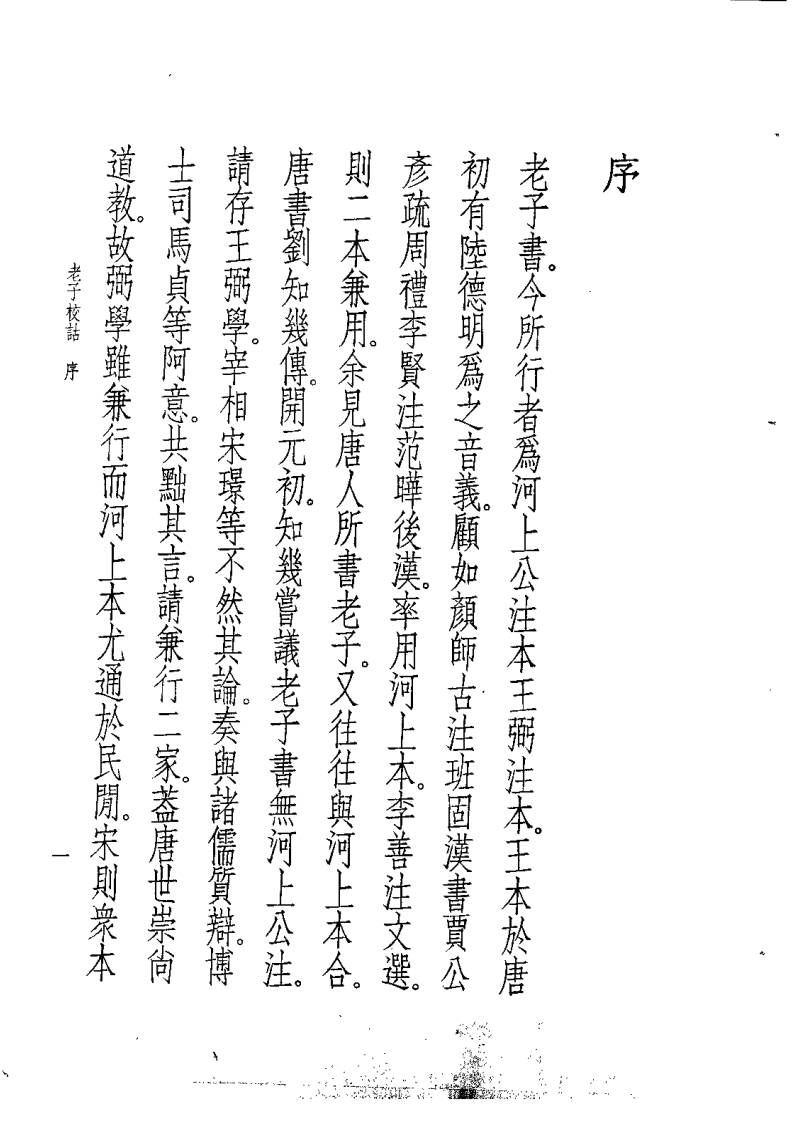 序
老子書。今所行者爲河上公注本王弼注本。王本於唐
初有陸德明爲之音義。顧如顏師古注班固漢書賈公
彥疏周禮李賢注范曄後漢。率用河上本。李善注文選。
則二本兼用。余見唐人所書老子。又往往與河上本合。
唐書劉知幾傳。開元初。知幾嘗議老子書無河上公注。
請存王弼學。宰相宋璟等不然其論。奏與諸儒質辯。博
士司馬貞等阿意。共黜其言。請兼行二家。葢唐世崇尙
道教。故弼學雖兼行而河上本尤通於民閒。宋則衆本
老子校詁 序
一